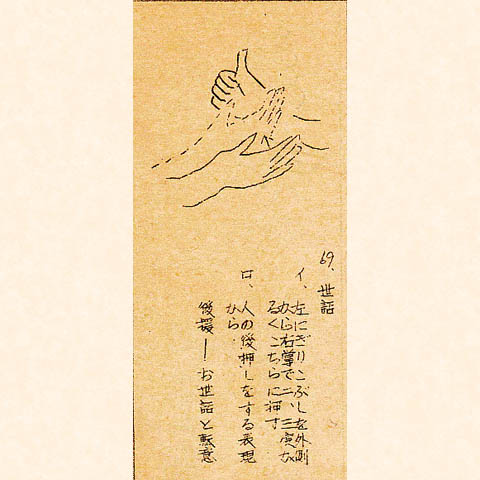 69. 世話
イ、左にぎりこぶしを外側
から右掌で二、三度か
るくこちらに押す
ロ、人の後押しをする表現
から、
後援—お世話と転意